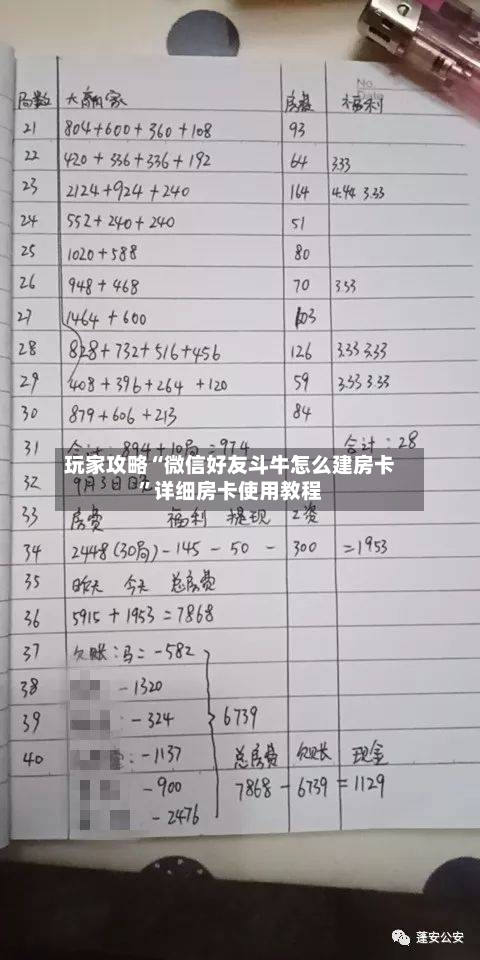 No.
Date
局数 大赢家 房费 福利
21 804+600+360+108 93
22 420+336+336+192 64 3.33
23 2124+924+240 164 4.44 3.33
24 552+240+240 51
25 1020+588 80
26 948+468 70 3.33
27 1464+600 103
28 828+732+516+456 126 3.33 3.33
29 408+396+264 +120 59 3.33 3.33
30 879+606+213 84
31 合计:894+10局=974 合计:28
玩家攻略“微信好友斗牛怎么建房卡
”详细房卡使用教程
32 9月3日
33 房费 福利 提现 工资
34 2448(30局)-145-50-300=1953
35 昨天 今天 总房费
36 5915+1953=7868
37 欠账:马:-582
38 -1320
39 :-324 6739
40 :-1137 总房费 欠账 现金
-900 7868-6739=1129
-2476
蓬安公安